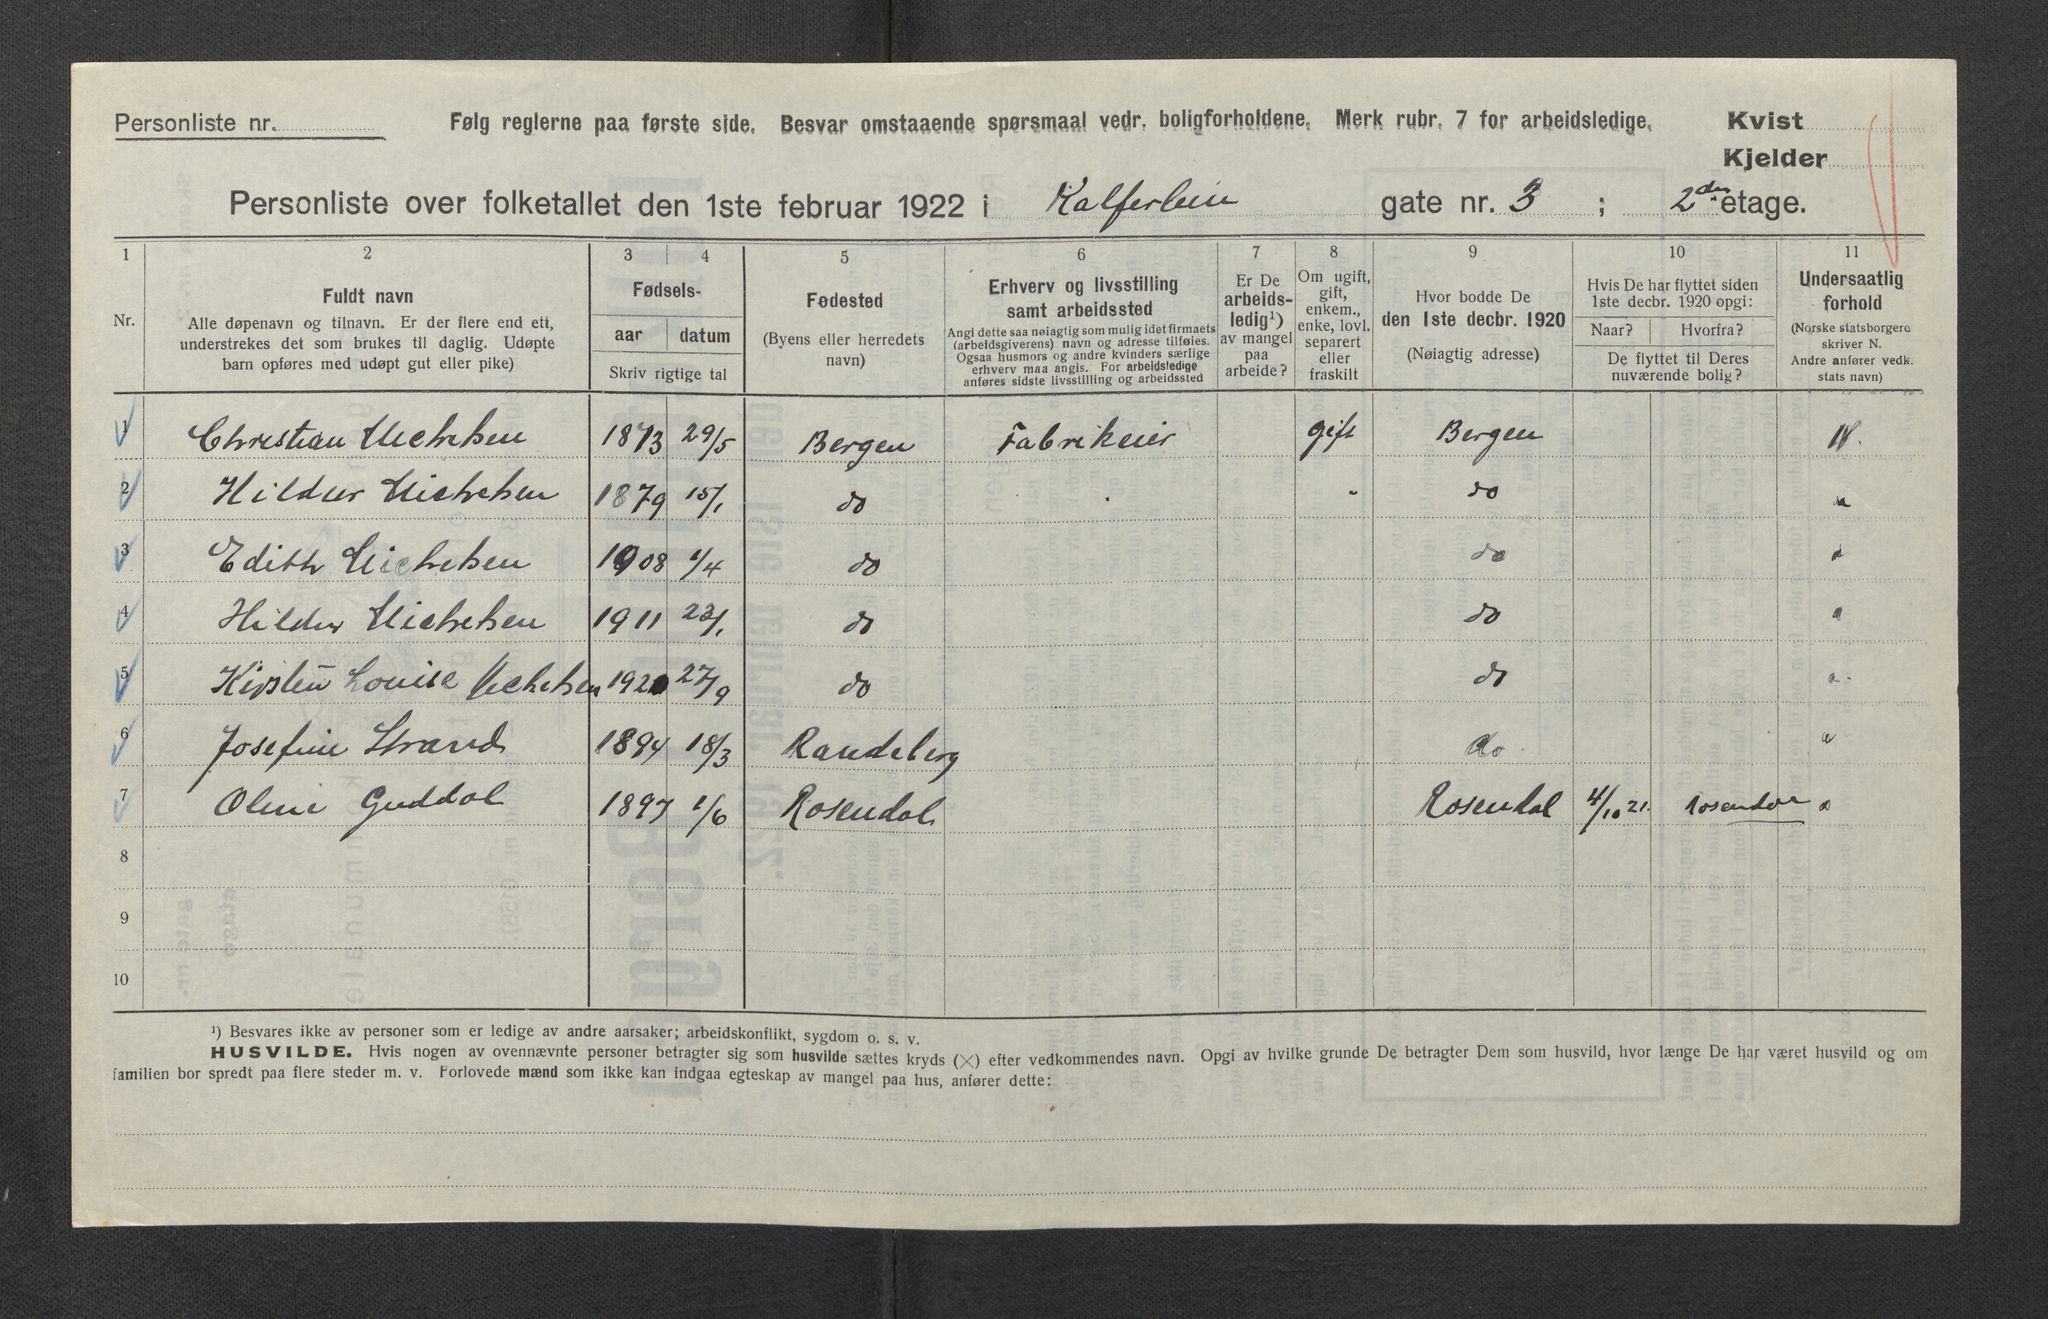 Personliste nr.
Følg reglerne paa første side. Besvar omstaaende spørsmaal vedr. boligforholdene. Merk rubr. 7 for arbeidsledige.
Kvist
Kjelder
Personliste over folketallet den 1ste februar 1922 i Kalferleiu gate nr. 3 ; 2den etage.
1 2 3 4 5 6 7 8 9 10 11
Nr.
Fuldt navn
Alle døpenavn og tilnavn. Er der flere end ett,
understrekes det som brukes til daglig. Udøpte
barn opføres med udøpt gut eller pike)
Fødsels-
aar datum
Skriv rigtige tal
Fødested
(Byens eller herredets
navn)
Erhverv og livsstilling
samt arbeidssted
Angi dette saa nøiagtig som mulig idet firmaets
(arbeidsgiverens) navn og adresse tilføies.
Ogsaa husmors og andre kvinders særlige
erhverv maa angis. For arbeidsledige
anføres sidste livsstilling og arbeidssted
Er De
arbeids-
ledig¹)
av mangel
paa
arbeide?
Om ugift,
gift,
enkem.,
enke, lovl.
separert
eller
fraskilt
Hvor bodde De
den 1ste decbr. 1920
(Nøiagtig adresse)
Hvis De har flyttet siden
1ste decbr. 1920 opgi:
Naar? Hvorfra?
De flyttet til Deres
nuværende bolig?
Undersaatlig
forhold
(Norske statsborgere
skriver N.
Andre anfører vedk.
stats navn)
1 Christian Michelsen 1873 29/5 Bergen Fabrikeier gift Bergen N.
2 Hildur Michelsen 1879 15/1 do " do "
3 Edith Michelsen 1908 1/4 do do "
4 Hildur Michelsen 1911 23/1 do do "
5 Kirsten Louise Michelsen 1920 27/9 do do "
6 Josefine Strand 1894 18/3 Randeberg do "
7 Oline Guddal 1897 1/6 Rosendal Rosendal 4/10 21. Rosendal "
8
9
10
¹) Besvares ikke av personer som er ledige av andre aarsaker; arbeidskonflikt, sygdom o. s. v.
HUSVILDE. Hvis nogen av ovennævnte personer betragter sig som husvilde sættes kryds (×) efter vedkommendes navn. Opgi av hvilke grunde De betragter Dem som husvild, hvor længe De har været husvild og om
familien bor spredt paa flere steder m. v. Forlovede mænd som ikke kan indgaa egteskap av mangel paa hus, anfører dette: